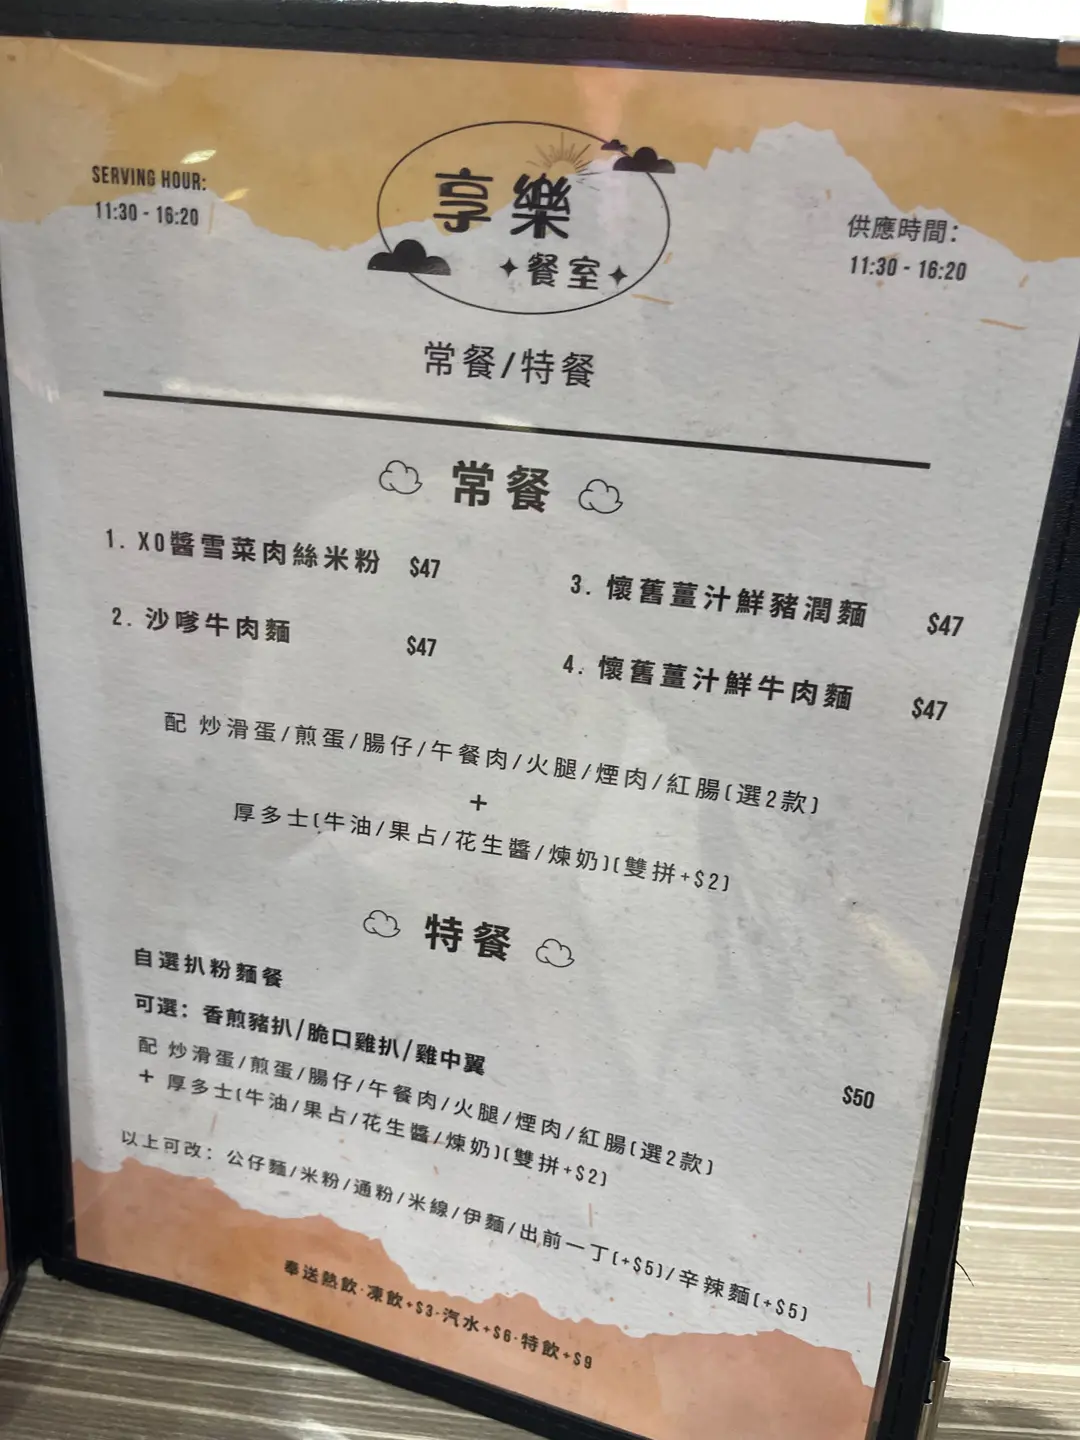 SERVING HOUR:
11:30 - 16:20
享樂
餐室
供應時間：
11:30 - 16:20
常餐/特餐
常餐
1. XO醬雪菜肉絲米粉 $47
2. 沙嗲牛肉麵 $47
3. 懷舊薑汁鮮豬潤麵 $47
4. 懷舊薑汁鮮牛肉麵 $47
配 炒滑蛋/煎蛋/腸仔/午餐肉/火腿/煙肉/紅腸(選2款)
+
厚多士(牛油/果占/花生醬/煉奶)(雙拼+$2)
特餐
自選扒粉麵餐
可選：香煎豬扒/脆口雞扒/雞中翼
配 炒滑蛋/煎蛋/腸仔/午餐肉/火腿/煙肉/紅腸(選2款)
$50
+ 厚多士(牛油/果占/花生醬/煉奶)(雙拼+$2)
以上可改：公仔麵/米粉/通粉/米線/伊麵/出前一丁(+$5)/辛辣麵(+$5)
奉送熱飲·凍飲+$3·汽水+$6·特飲+$9